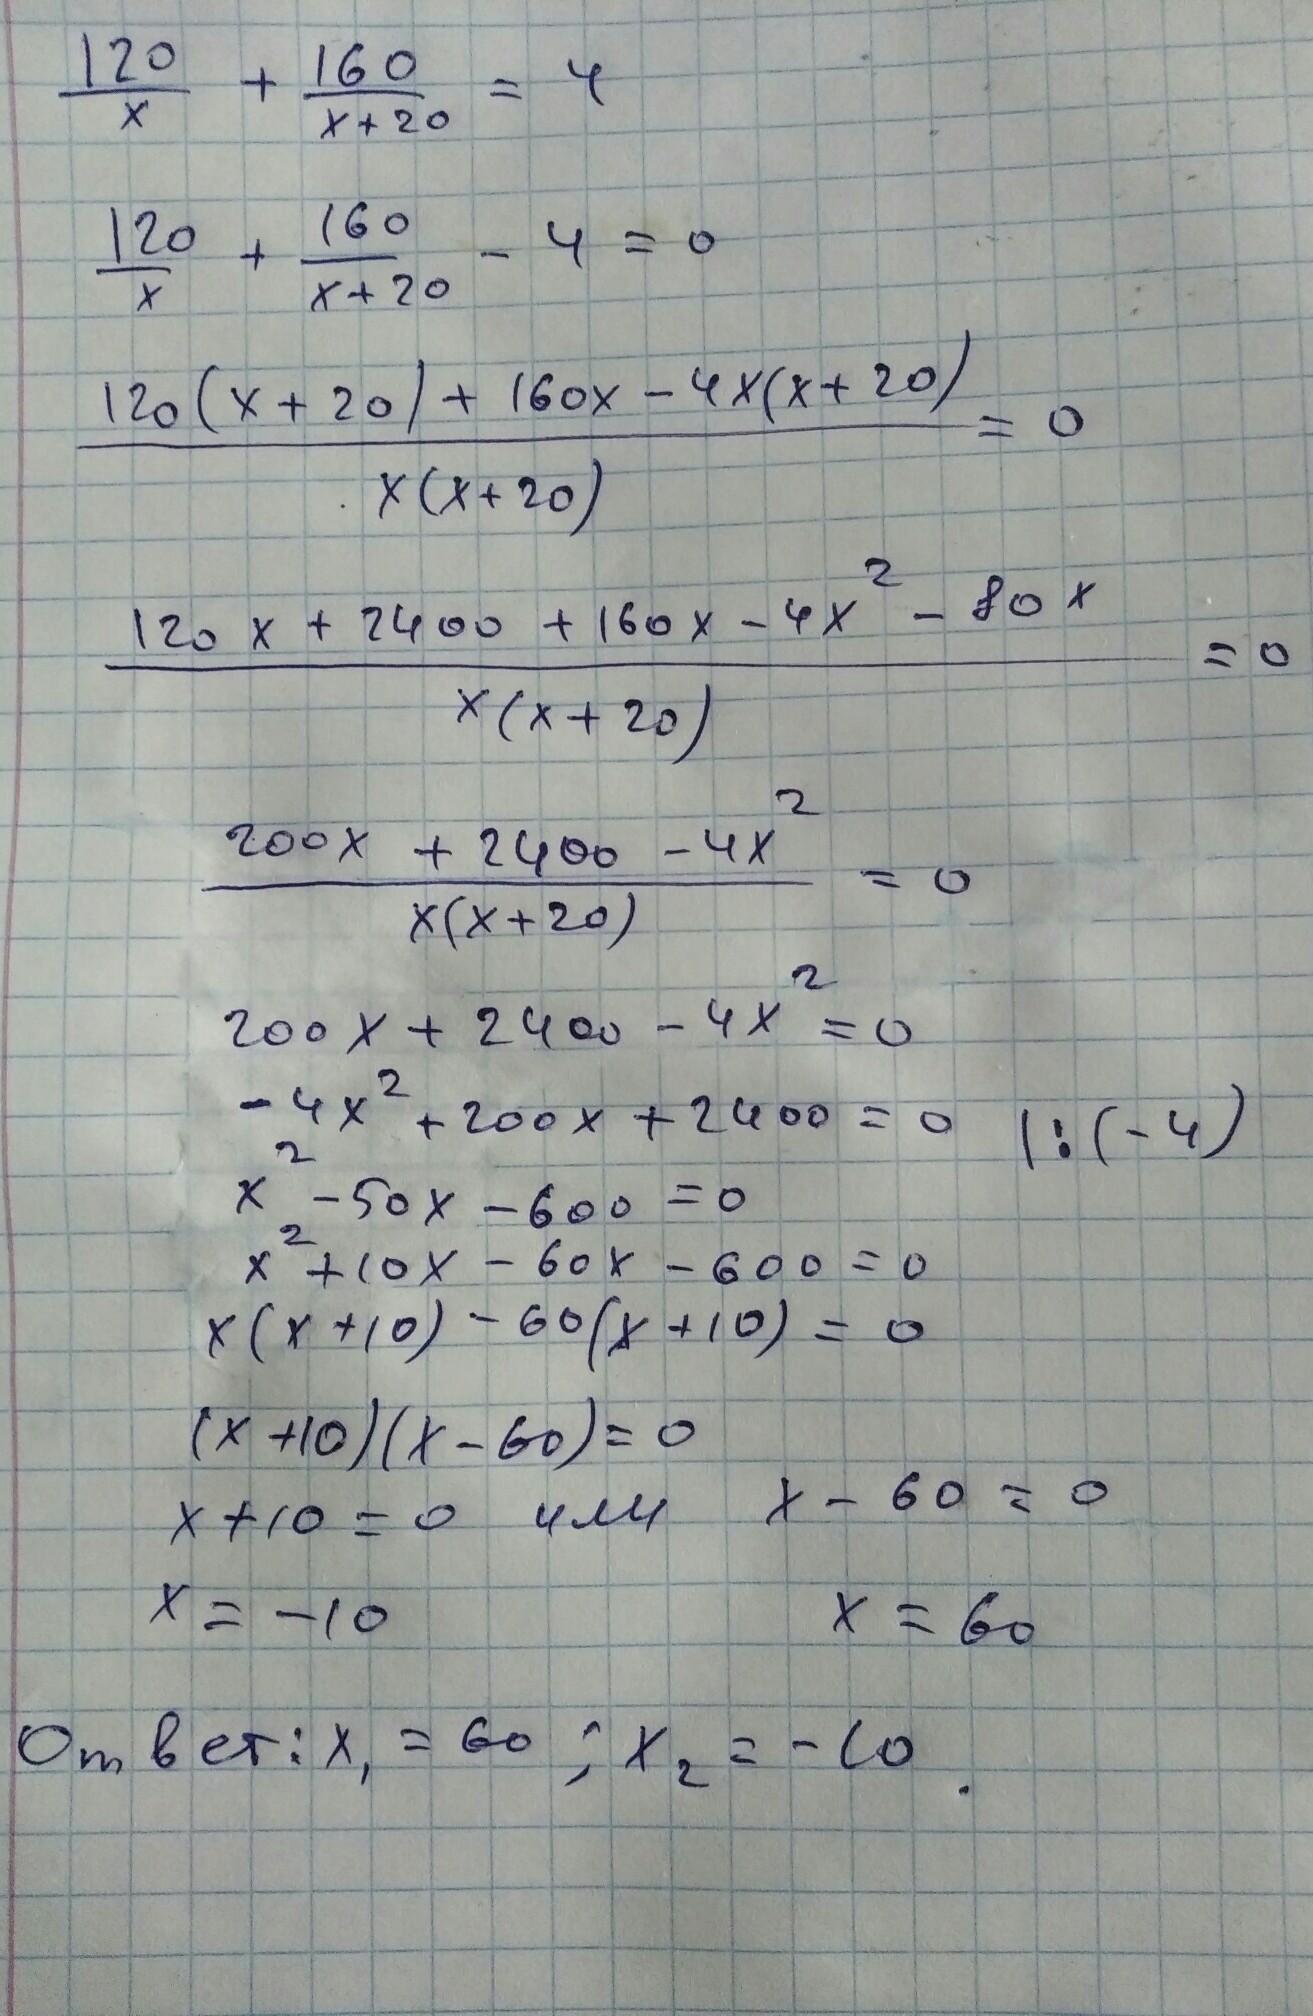 120/x + 160/(x+20) = 4
120/x + 160/(x+20) - 4 = 0
(120(x+20)+160x-4x(x+20))/(x(x+20)) = 0
(120x+2400+160x-4x²-80x)/(x(x+20)) = 0
(200x+2400-4x²)/(x(x+20)) = 0
200x+2400-4x²=0
-4x²+200x+2400=0 |:(-4)
x²-50x-600=0
x²+10x-60x-600=0
x(x+10)-60(x+10)=0
(x+10)(x-60)=0
x+10=0 или x-60=0
x=-10 x=60
Ответ: x₁=60; x₂=-10.